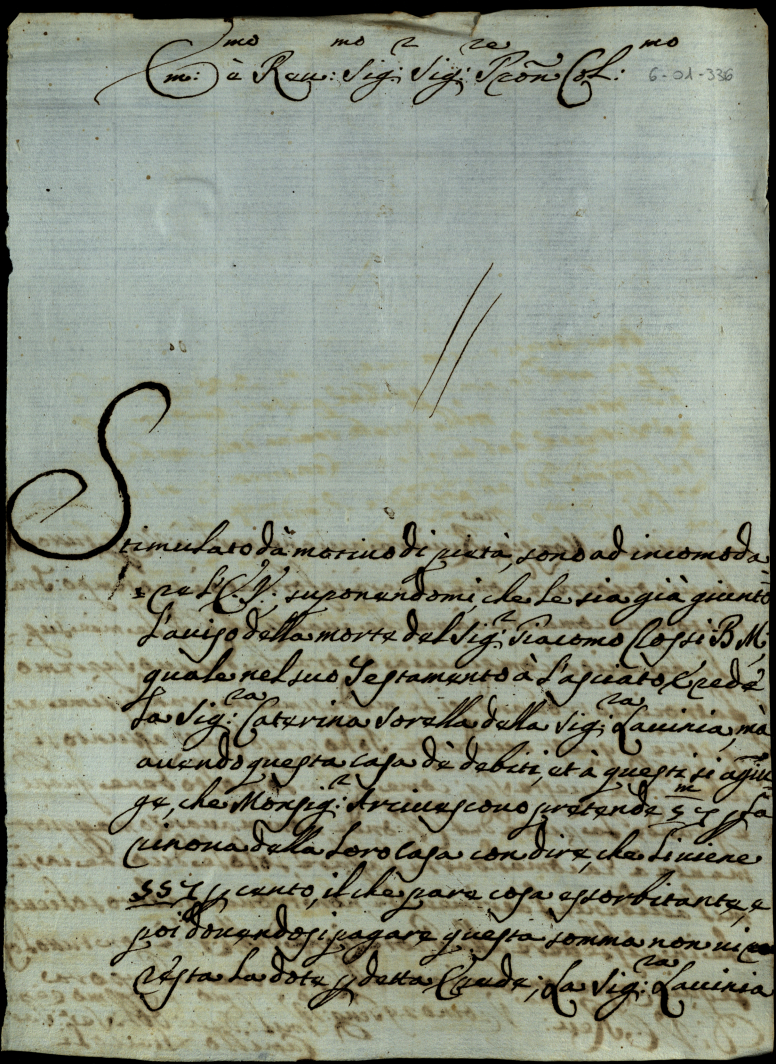 Em:mo è Reu:mo Sig:r Sig:r Pron̄ Col:mo
6-01-336
Stimulato dà motivo di pietà, sono ad incomoda
=re l'E.V:, suponendomi, che le sia già giunto
l'aviso della morte del Sig:r Giacomo Clossi B M:
quale nel suo Testamento à lasciato Erede
la Sig:ra Caterina sorella della Sig:ra Lavinia, mà
avendo questa casa dè debiti, et à questi si agiun
ge, che Monsig:r Arcivescovo pretende
della loro casa con dire, che li viene
cento, il che pare cosa essorbitante, e
poi dovendosi pagare questa somma non vi
resta la dote p detta Erede; La Sig:ra Lavinia